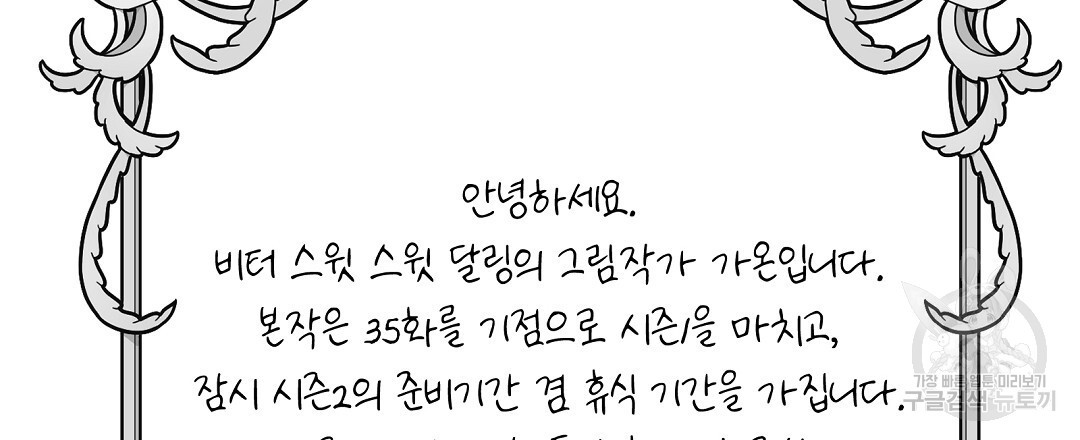 안녕하세요.
비터 스윗 스윗 달링의 그림작가 가온입니다.
본작은 35화를 기점으로 시즌1을 마치고,
잠시 시즌2의 준비기간 겸 휴식 기간을 가집니다.
가장 빠른 웹툰 미리보기
구글검색 뉴토끼